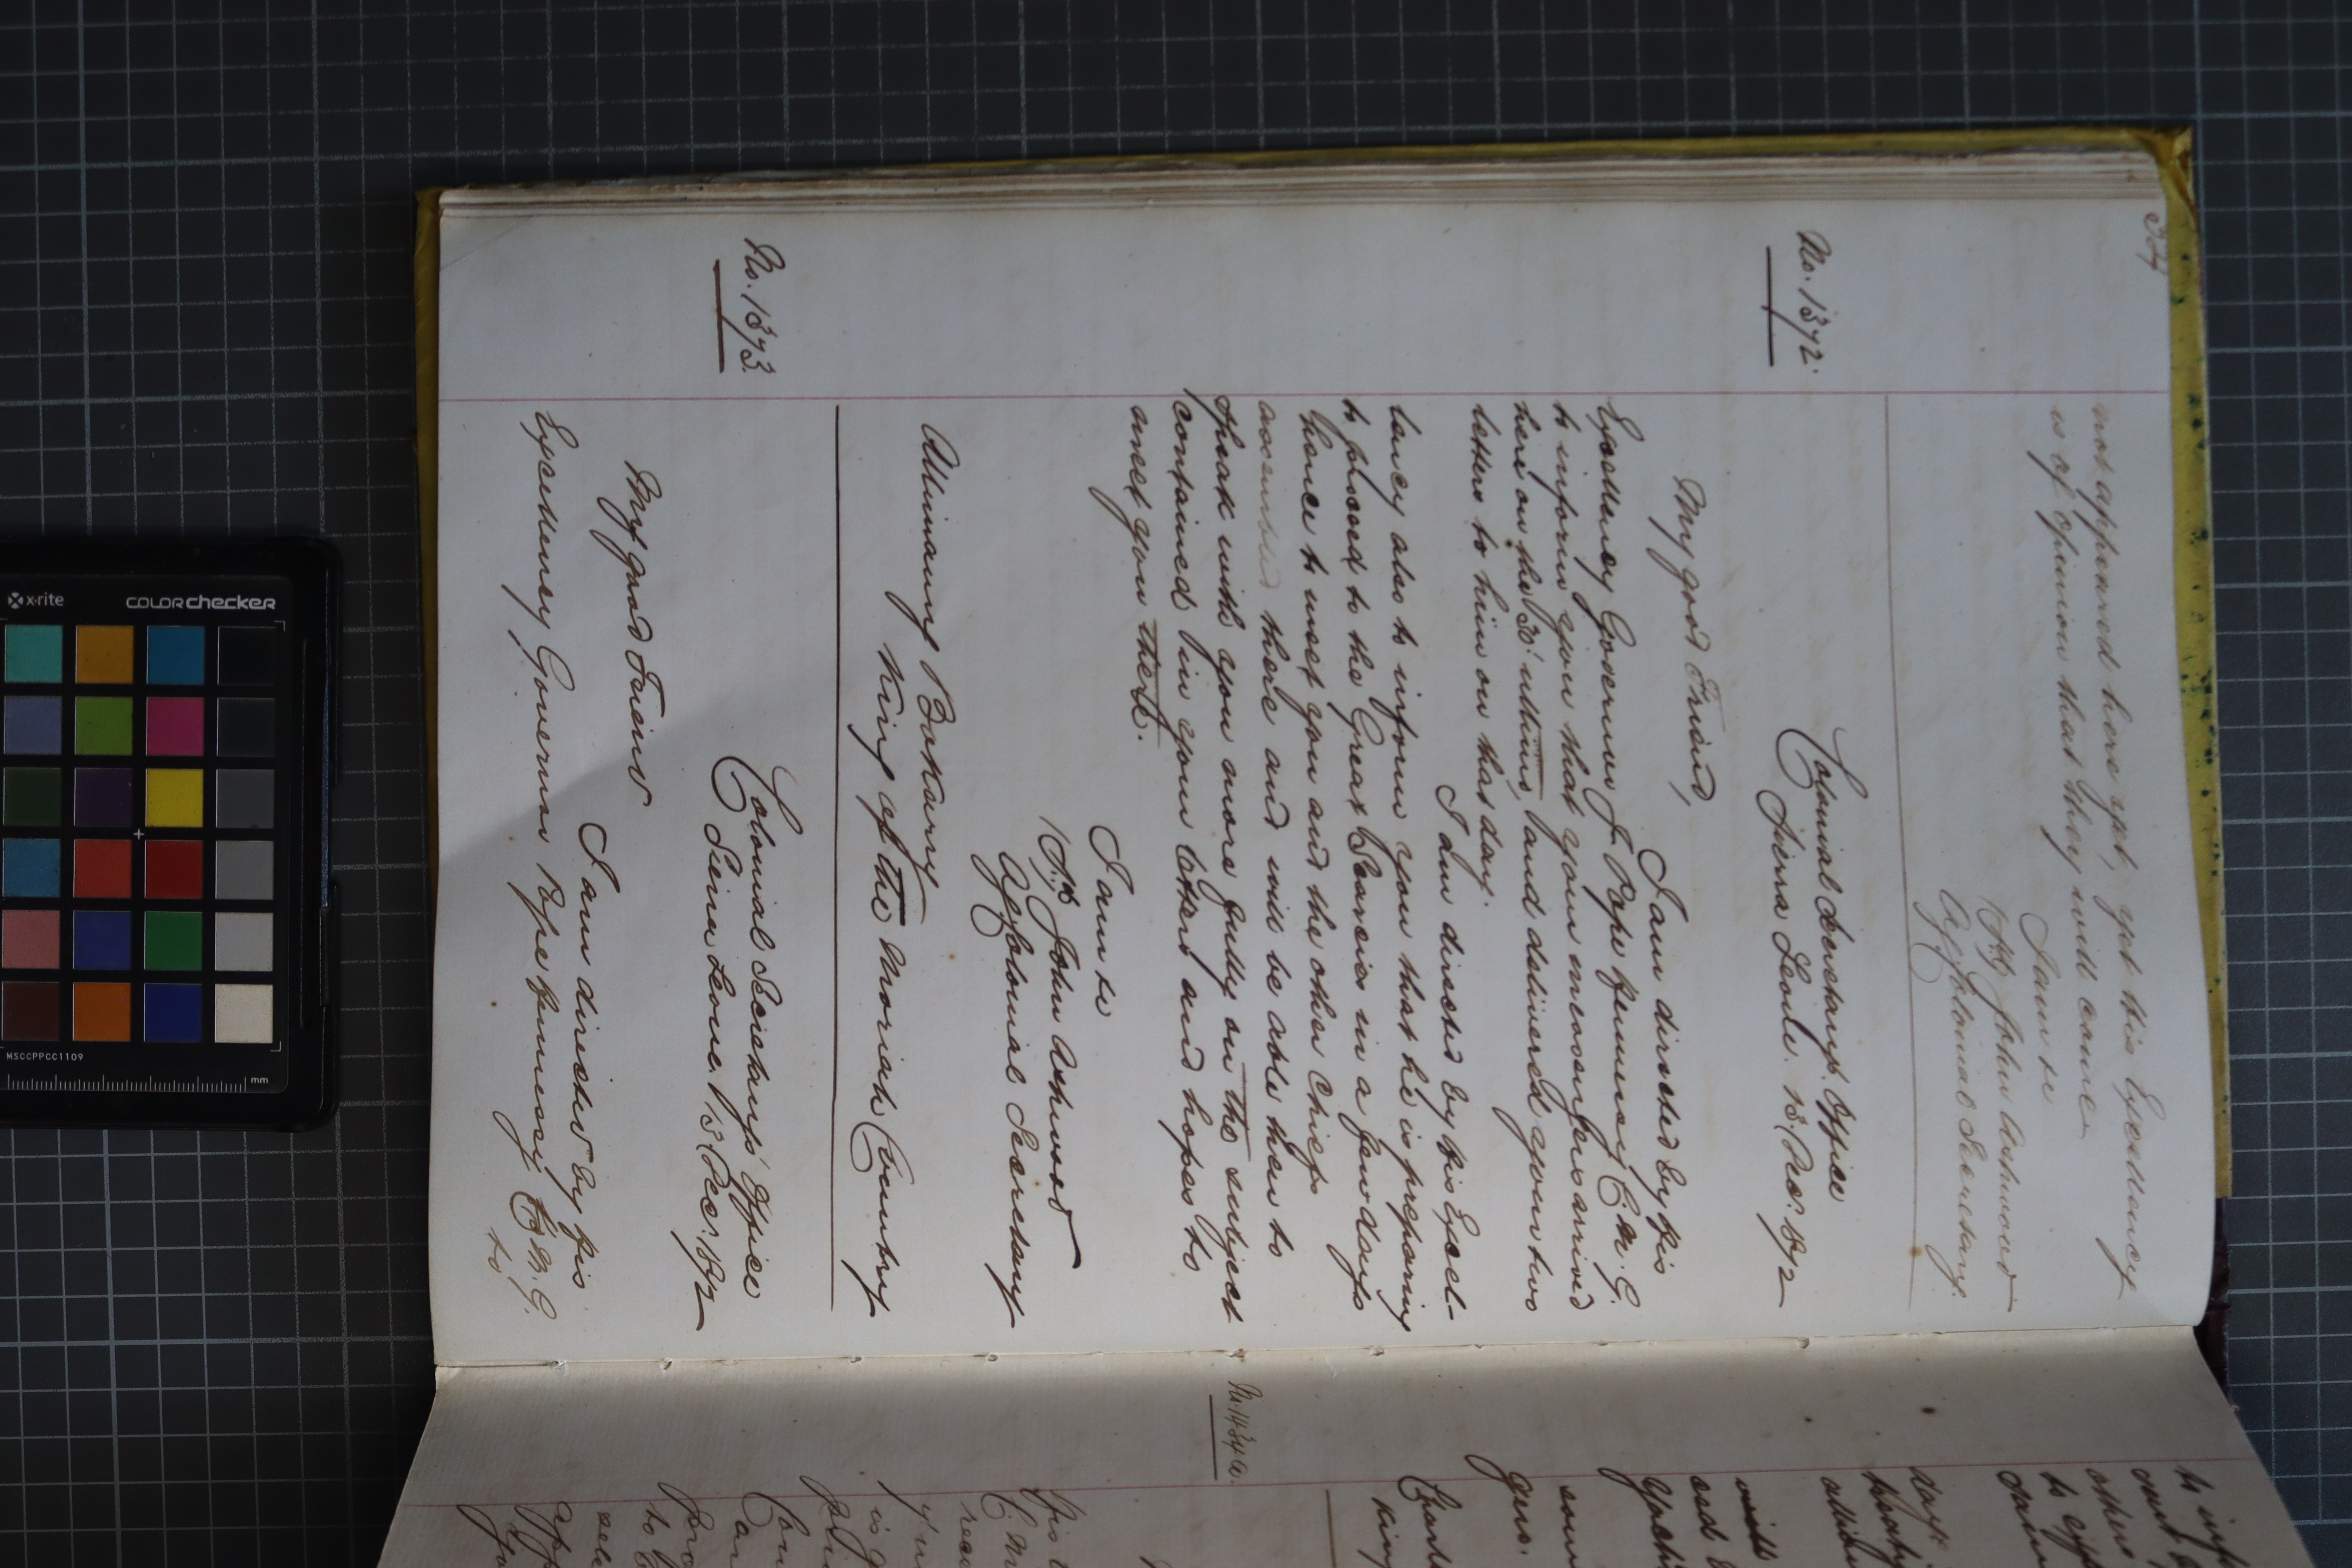 334
not appeared here yet, yet His Excellency
is of opinion that they will come
I am &c
(Sd) John Ashwood
Ag Colonial Secretary.
No. 1372.
Colonial Secretary's Office
Sierra Leone. 13 Dec: 1872
My good Friend,
I am directed by His
Excellency Governor J. Pope Hennessy C.M.G.
to inform you that your messengers arrived
here on the 30' ultimo, and delivered your two
letters to him on that day.
I am directed by His Excel-
lency also to inform you that he is preparing
to proceed to the Great Scarcies in a few days
hence to meet you and the other Chiefs
assembled there and will be able then to
speak with you more fully on the subject
contained in your letters and hopes to
meet you there.
I am &c
(Sd) John Ashwood
Ag Colonial Secretary
Alimamy Bokarry
King of the Moriah Country
No. 1373.
Colonial Secretary's Office
Sierra Leone. 13 Dec: 1872
My good Friend
I am directed by His
Excellency Governor Pope Hennessy C.M.G.
to
to inf
No. 1434a.
King